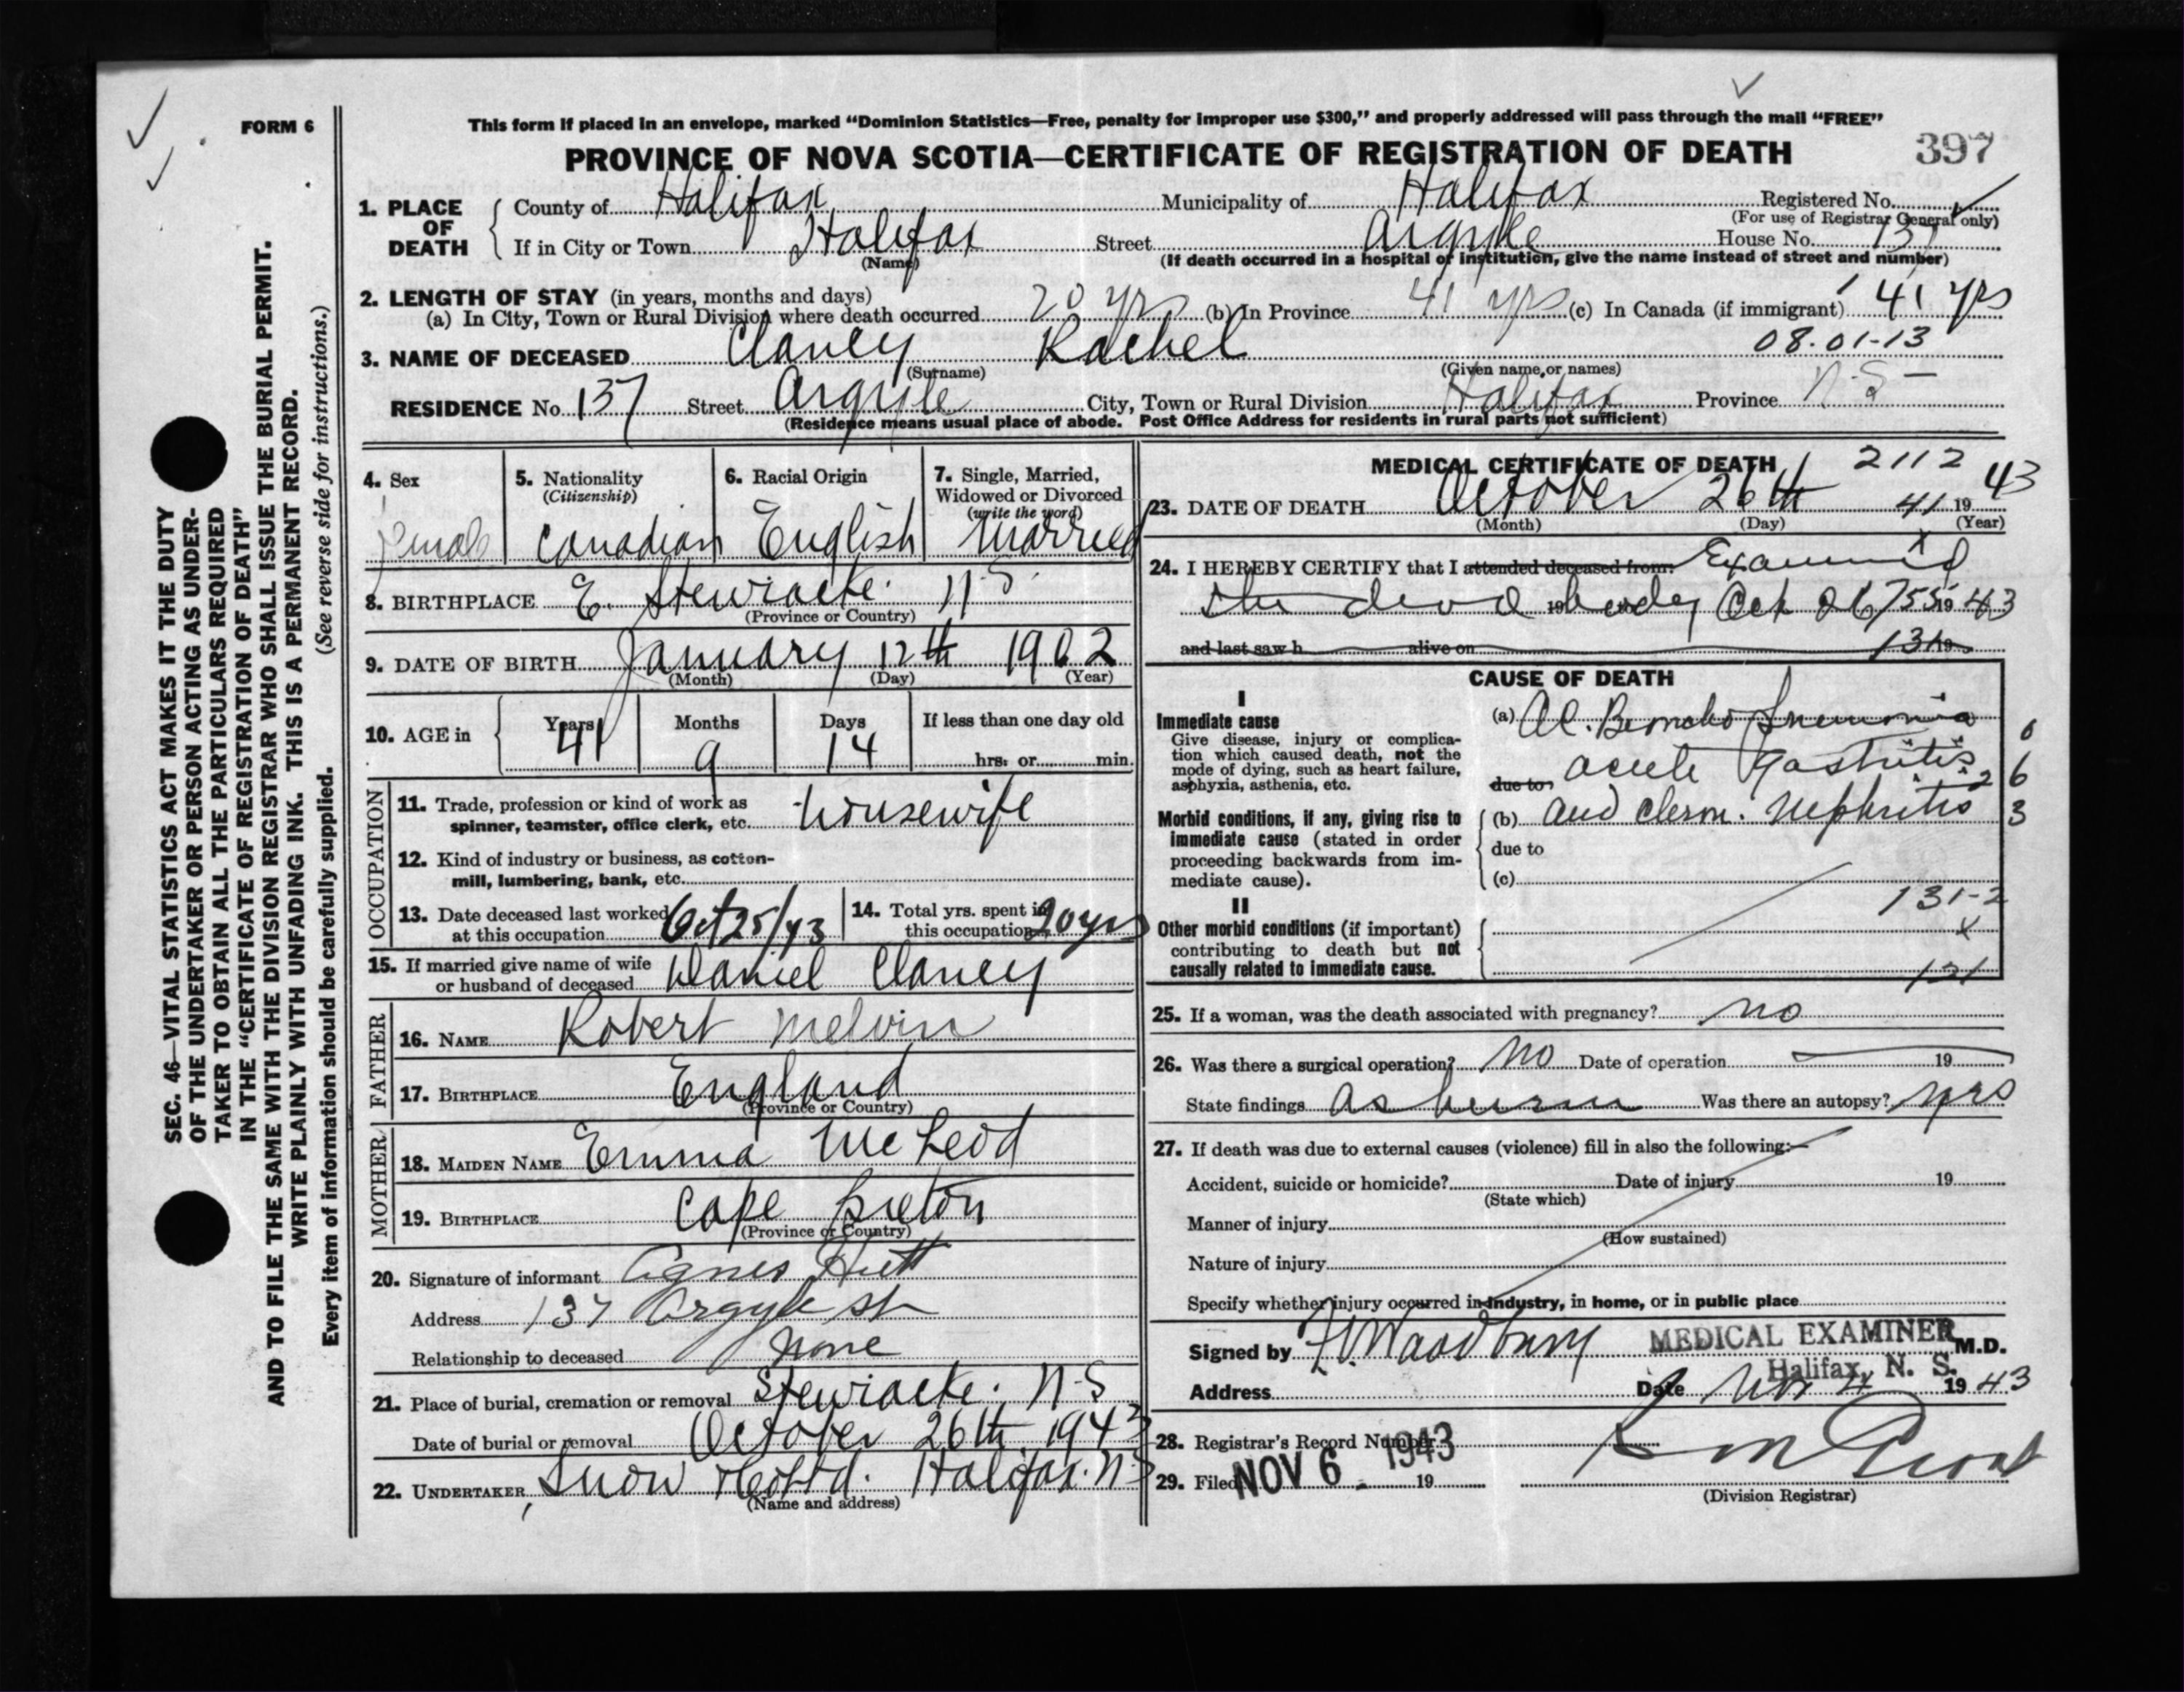 FORM 6
This form if placed in an envelope, marked "Dominion Statistics—Free, penalty for improper use $300," and properly addressed will pass through the mail "FREE"
PROVINCE OF NOVA SCOTIA—CERTIFICATE OF REGISTRATION OF DEATH 397
1. PLACE OF DEATH
County of Halifax Municipality of Halifax Registered No.
(For use of Registrar General only)
If in City or Town Halifax Street Argyle House No. 137
(Name) (If death occurred in a hospital or institution, give the name instead of street and number)
2. LENGTH OF STAY (in years, months and days)
(a) In City, Town or Rural Division where death occurred 20 yrs (b) In Province 41 yrs (c) In Canada (if immigrant) 41 yrs
3. NAME OF DECEASED Clancy Rachel 08-01-13
(Surname) (Given name or names)
RESIDENCE No. 137 Street Argyle City, Town or Rural Division Halifax Province N.S
(Residence means usual place of abode. Post Office Address for residents in rural parts not sufficient)
4. Sex
Female
5. Nationality
(Citizenship)
Canadian
6. Racial Origin
English
7. Single, Married,
Widowed or Divorced
(write the word)
Married
8. BIRTHPLACE E. Stewiacke. N.S.
(Province or Country)
9. DATE OF BIRTH January 12th 1902
(Month) (Day) (Year)
10. AGE in
Years 41
Months 9
Days 14
If less than one day old
hrs. or min.
OCCUPATION
11. Trade, profession or kind of work as
spinner, teamster, office clerk, etc. Housewife
12. Kind of industry or business, as cotton-
mill, lumbering, bank, etc.
13. Date deceased last worked
at this occupation Oct 25/43
14. Total yrs. spent in
this occupation 20 yrs
15. If married give name of wife
or husband of deceased Daniel Clancy
FATHER
16. NAME Robert Melvin
17. BIRTHPLACE England
(Province or Country)
MOTHER
18. MAIDEN NAME Emma McLeod
19. BIRTHPLACE Cape Breton
(Province or Country)
20. Signature of informant Agnes Hutt
Address 137 Argyle St
Relationship to deceased None
21. Place of burial, cremation or removal Stewiacke. N.S
Date of burial or removal October 26th 1943
22. UNDERTAKER Snow & Co Ltd. Halifax. N.S
(Name and address)
MEDICAL CERTIFICATE OF DEATH 2112
23. DATE OF DEATH October 26th 41 19 43
(Month) (Day) (Year)
24. I HEREBY CERTIFY that I attended deceased from: Examined
the dead 19 body Oct 26 755 19 43
and last saw h alive on 131 19
CAUSE OF DEATH
I
Immediate cause
Give disease, injury or complica-
tion which caused death, not the
mode of dying, such as heart failure,
asphyxia, asthenia, etc.
(a) Ac. Broncho Pneumonia
due to acute Gastritis
Morbid conditions, if any, giving rise to
immediate cause (stated in order
proceeding backwards from im-
mediate cause).
(b) and chron. Nephritis
due to
(c)
2 6
3
131-2
II
Other morbid conditions (if important)
contributing to death but not
causally related to immediate cause.
x
131
25. If a woman, was the death associated with pregnancy? no
26. Was there a surgical operation? No Date of operation 19
State findings As herein Was there an autopsy? yes
27. If death was due to external causes (violence) fill in also the following:—
Accident, suicide or homicide? Date of injury 19
(State which)
Manner of injury
(How sustained)
Nature of injury
Specify whether injury occurred in industry, in home, or in public place
Signed by Woodbury MEDICAL EXAMINER M.D.
Halifax, N. S.
Address Date Nov 4 19 43
28. Registrar's Record Number
29. Filed NOV 6 - 1943 19
(Division Registrar)
SEC. 46—VITAL STATISTICS ACT MAKES IT THE DUTY
OF THE UNDERTAKER OR PERSON ACTING AS UNDER-
TAKER TO OBTAIN ALL THE PARTICULARS REQUIRED
IN THE "CERTIFICATE OF REGISTRATION OF DEATH"
AND TO FILE THE SAME WITH THE DIVISION REGISTRAR WHO SHALL ISSUE THE BURIAL PERMIT.
WRITE PLAINLY WITH UNFADING INK. THIS IS A PERMANENT RECORD.
Every item of information should be carefully supplied. (See reverse side for instructions.)